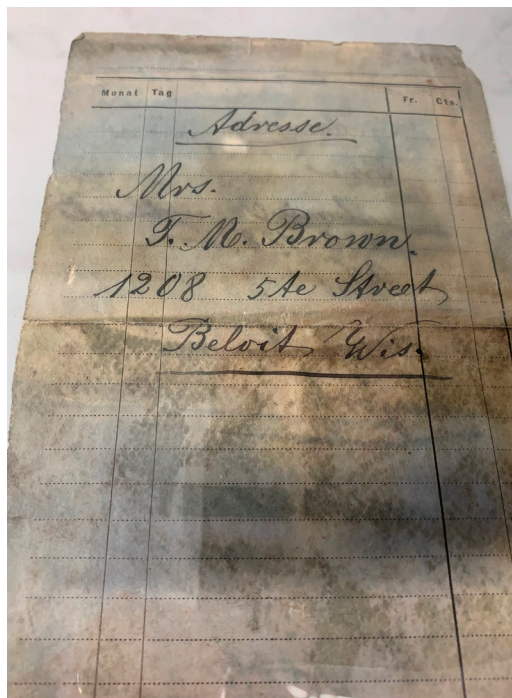 Monat Tag Fr. Cts.
Adresse.
Mrs.
T. M. Brown.
1208 5te Street
Beloit, Wis.